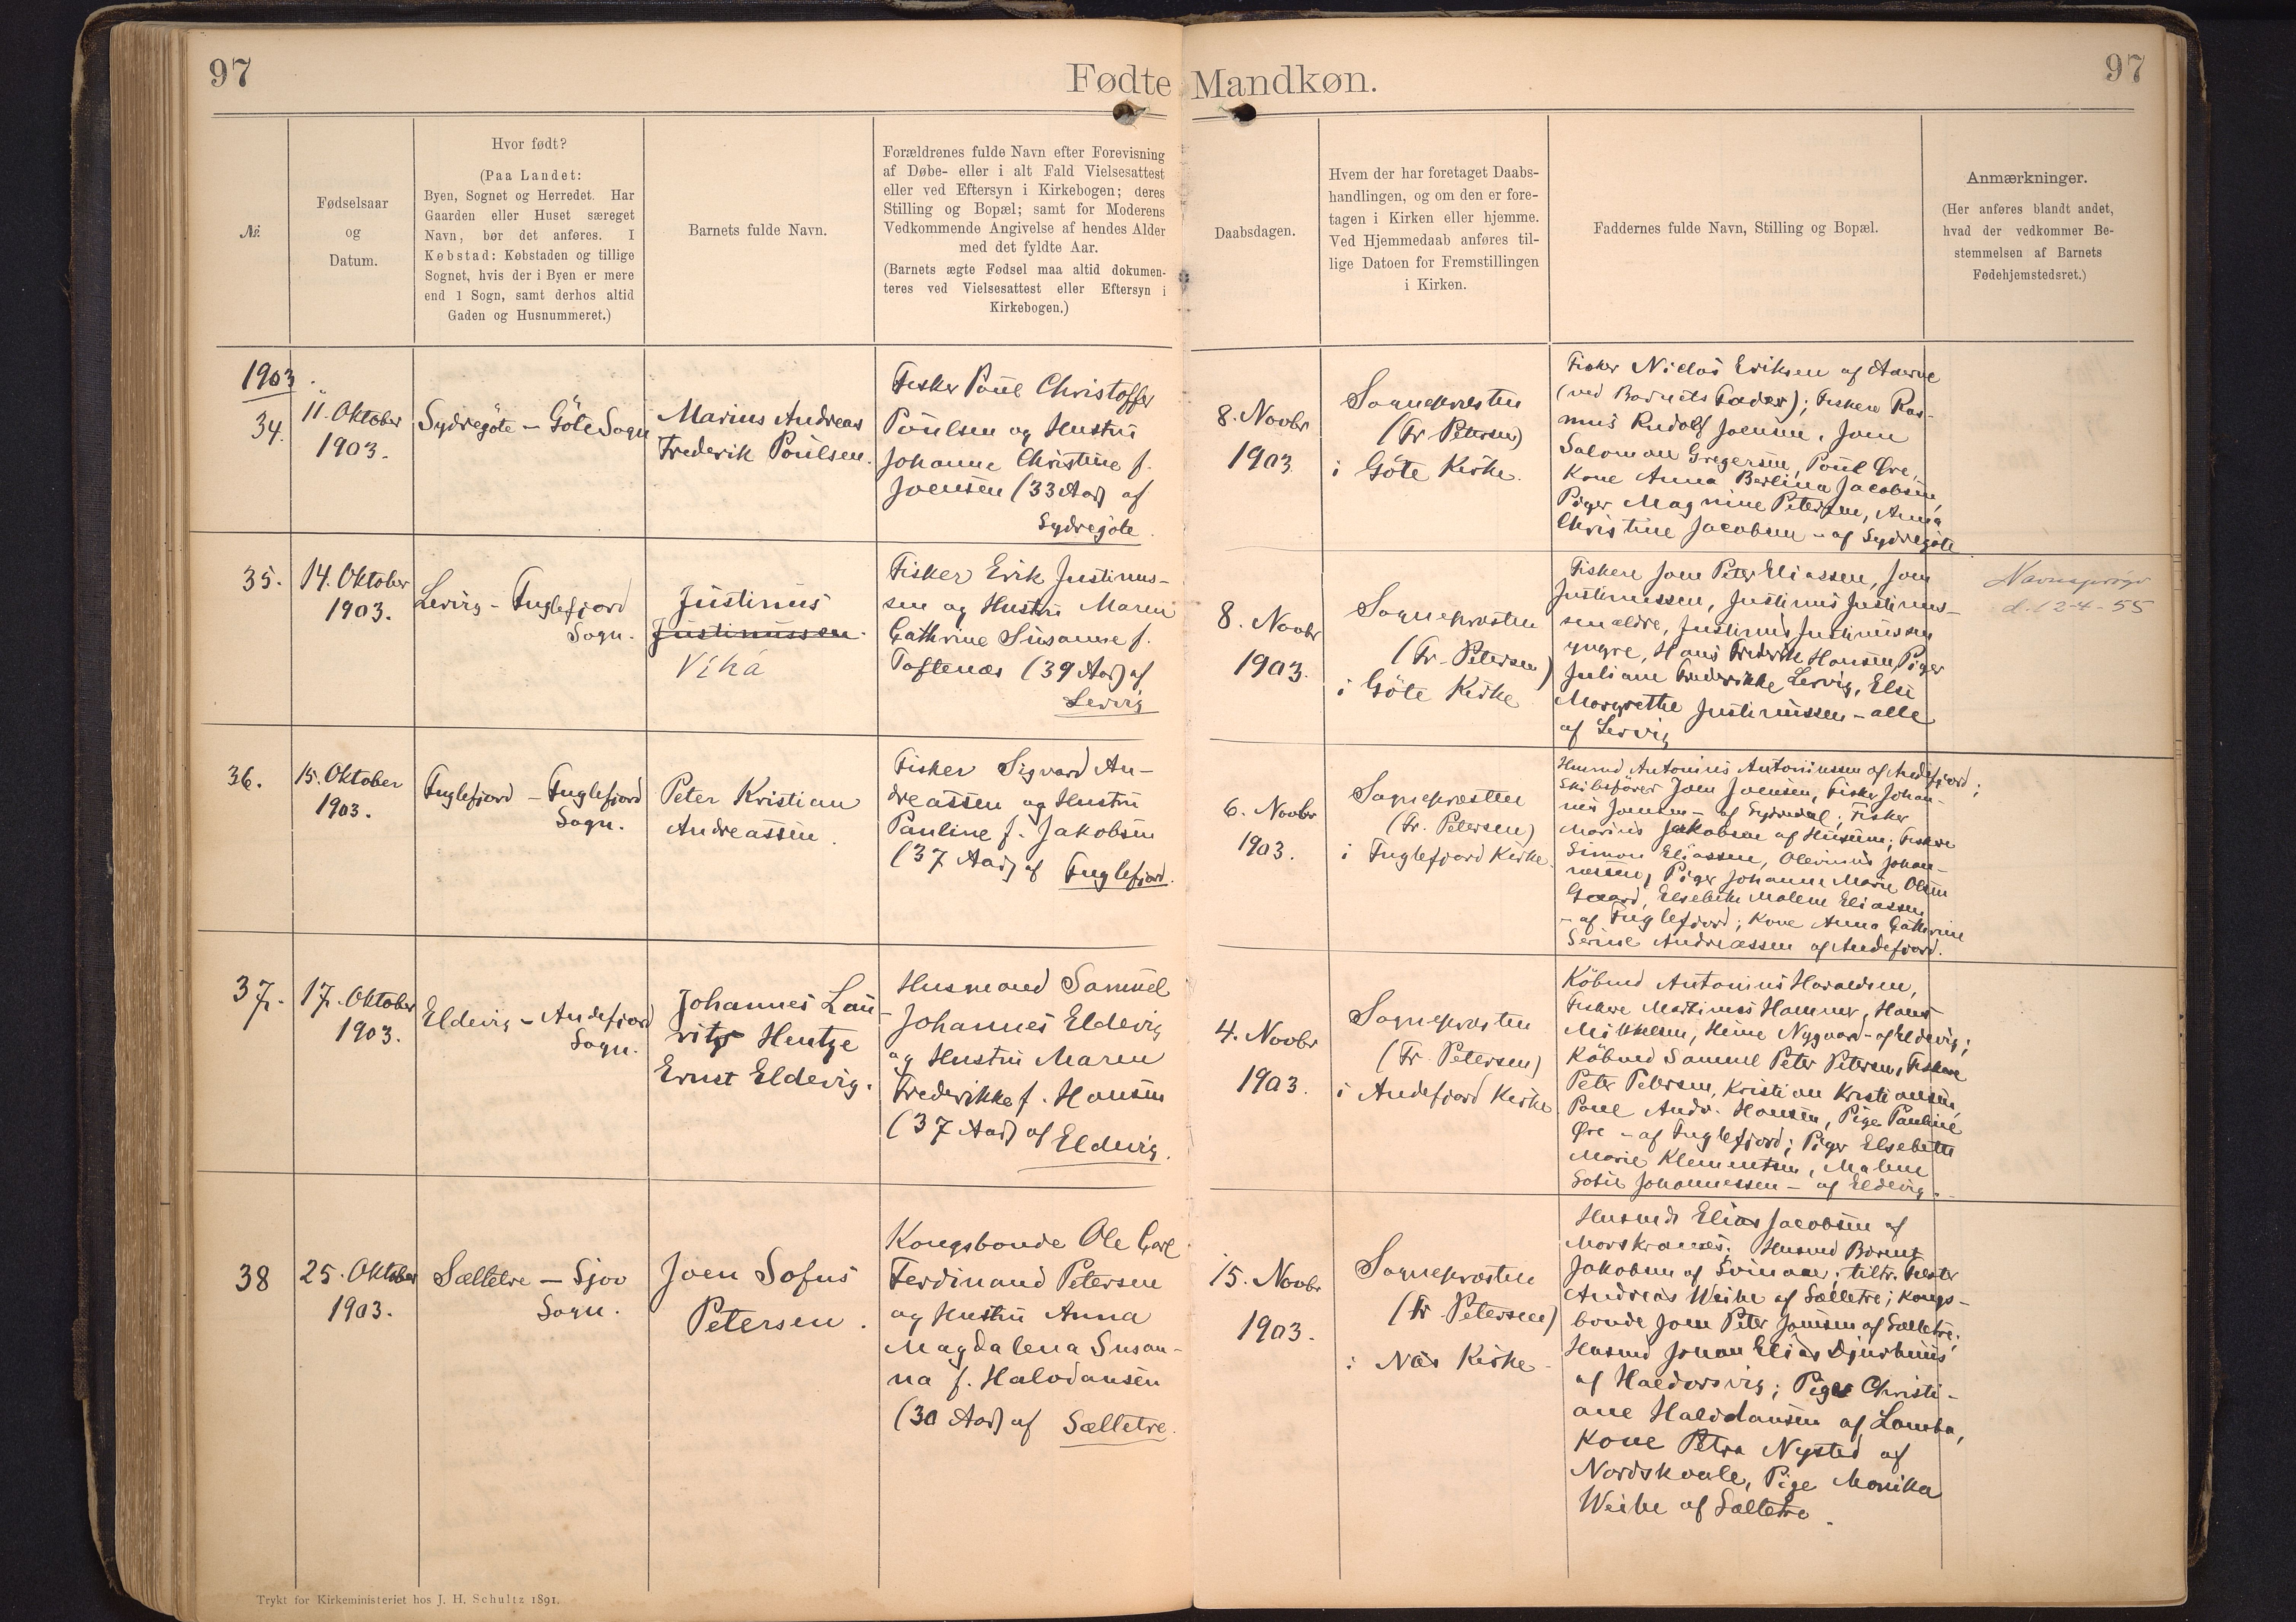 97
Fødte Mandkøn.
97
№.
Fødselsaar
og
Datum.
Hvor født?
(Paa Landet:
Byen, Sognet og Herredet. Har
Gaarden eller Huset særeget
Navn, bør det anføres. I
Købstad: Købstaden og tillige
Sognet, hvis der i Byen er mere
end 1 Sogn, samt derhos altid
Gaden og Husnummeret.)
Barnets fulde Navn.
Forældrenes fulde Navn efter Forevisning
af Døbe- eller i alt Fald Vielsesattest
eller ved Eftersyn i Kirkebogen; deres
Stilling og Bopæl; samt for Moderens
Vedkommende Angivelse af hendes Alder
med det fyldte Aar.
(Barnets ægte Fødsel maa altid dokumen-
teres ved Vielsesattest eller Eftersyn i
Kirkebogen.)
Daabsdagen.
Hvem der har foretaget Daabs-
handlingen, og om den er fore-
tagen i Kirken eller hjemme.
Ved Hjemmedaab anføres til-
lige Datoen for Fremstillingen
i Kirken.
Faddernes fulde Navn, Stilling og Bopæl.
Anmærkninger.
(Her anføres blandt andet,
hvad der vedkommer Be-
stemmelsen af Barnets
Fødehjemstedsret.)
1903.
34.
11. Oktober
1903.
Sydregöte - Göte Sogn
Marius Andreas
Frederik Poulsen.
Fisker Poul Christoffer
Poulsen og Hustru
Johanne Christine f.
Joensen (33 Aar) af
Sydregöte.
8. Novbr
1903.
Sognepræsten
(Fr. Petersen)
i Göte Kirke.
Fisker Niclas Eriksen af
(ved Barnets Fader); Fiskere Ras-
mus Rudolf Joensen, Joen
Salomon Gregersen, Poul Øre,
Kone Anna Berlina Jacobsen,
Piger Magnine Petersen, Anna
Christine Jacobsen - af Sydregöte.
35.
14. Oktober
1903.
Lervig - Fuglefjord
Sogn.
Justinus
Justinussen.
Vihá
Fisker Erik Justinus-
sen og Hustru Maren
Cathrine Susanne f.
Toftenæs (39 Aar) af
Lervig
8. Novbr
1903.
Sognepræsten
(Fr. Petersen)
i Göte Kirke
Fiskere Joen Peter Eliassen, Joen
Justinussen, Justinus Justinus-
sen ældre, Justinus Justinussen
yngre, Hans Frederik Hansen, Piger
Juliane Frederikke Lervig, Else
Margrethe Justinussen - alle
af Lervig
d. 12-4-55
36.
15. Oktober
1903.
Fuglefjord - Fuglefjord
Sogn.
Peter Kristian
Andreassen.
Fisker Sigvard An-
dreassen og Hustru
Pauline f. Jakobsen
(37 Aar) af Fuglefjord.
6. Novbr
1903.
Sognepræsten
(Fr. Petersen)
i Fuglefjord Kirke.
Husmd Antonius Antoniussen af Andefjord;
Skibsfører Joen Joensen, Fisker Johan-
nes Joensen - af Sydredal; Fisker
Marius Jakobsen af Husum; Fiskere
Simon Eliassen, Olevinus Johan-
nessen, Piger Johanne Marie Olsen
Gaard, Elsebeth Malene Eliassen
- af Fuglefjord; Kone Anna Cathrine
Serine Andreassen af Andefjord.
37.
17. Oktober
1903.
Eldevig - Andefjord
Sogn.
Johannes Lau-
ritz Hentze
Ernst Eldevig.
Husmand Samuel
Johannes Eldevig
og Hustru Maren
Frederikke f. Hansen
(37 Aar) af Eldevig.
4. Novbr
1903.
Sognepræsten
(Fr. Petersen)
i Andefjord Kirke.
Köbmd Antonius Haraldsen,
Fiskere Martinus Hammer, Hans
Mikkelsen, Heine Nygaard - af Eldevig;
Köbmd Samuel Peter Petersen, Fiskere
Peter Petersen, Kristian Kristiansen,
Poul Andr. Hansen, Pige Pauline
Øre - af Fuglefjord; Piger Elsebeth
Marie Klementsen, Malene
Sofie Johannessen - af Eldevig.
38
25. Oktober
1903.
Sælletre - Sjov
Sogn.
Joen Sofus
Petersen.
Kongsbonde Ole Carl
Ferdinand Petersen
og Hustru Anna
Magdalena Susan-
na f. Halvdansen
(30 Aar) af Sælletre.
15. Novbr
1903.
Sognepræsten
(Fr. Petersen)
i Næs Kirke.
Husmd Elias Jacobsen af
Morskranæs; Husmd Berint
Jakobsen af Svinaaer; tiltr. Fæster
Andreas Weihe af Sælletre; Kongs-
bonde Joen Peter Joensen af Sælletre;
Husmd Johan Elias Djurhuus
af Haldorsvig; Pige Christi-
ane Halvdansen af Lamba,
Kone Petra Nysted af
Nordskaale, Pige Monika
Weihe af Sælletre.
Trykt for Kirkeministeriet hos J. H. Schultz 1891.